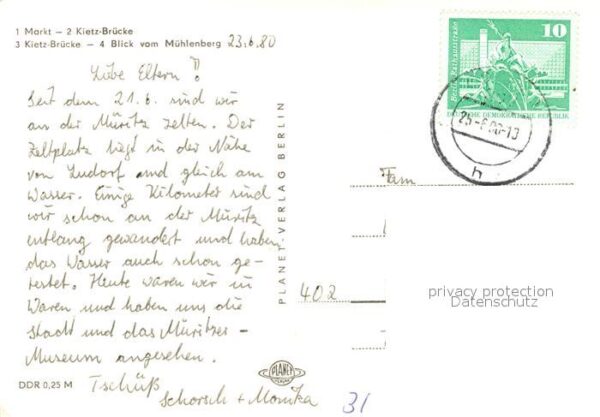 1 Markt – 2 Kietz-Brücke
3 Kietz-Brücke – 4 Blick vom Mühlenberg 23.6.80
Liebe Eltern!
Seit dem 21.6. sind wir
an der Müritz zelten. Der
Zeltplatz liegt in der Nähe
von Ludorf und gleich am
Wasser. Einige Kilometer sind
wir schon an der Müritz
entlang gewandert und haben
das Wasser auch schon ge-
testet. Heute waren wir in
Waren und haben uns die
Stadt und das Müritzer-
Museum angesehen.
Tschüß
Schorsch + Monika
DDR 0,25 M
PLANET-VERLAG BERLIN
PLANET
VERLAG
10
DEUTSCHE DEMOKRATISCHE REPUBLIK
h
Fam
402
privacy protection
Datenschutz
31